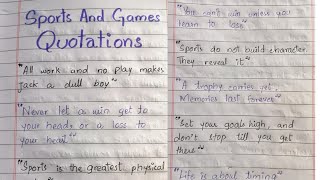 Sports And Games
Quotations
"All work and no play makes
jack a dull boy"
"Never let a win get to
your heads or a loss to
your heart"
"Sports is the greatest physical
"You can't win unless you
learn to lose"
"Sports do not build character.
They reveal it"
"A trophy carries
Memories last forever"
"Set your goals high, and
don't stop till you get
there"
"Life is about timing"